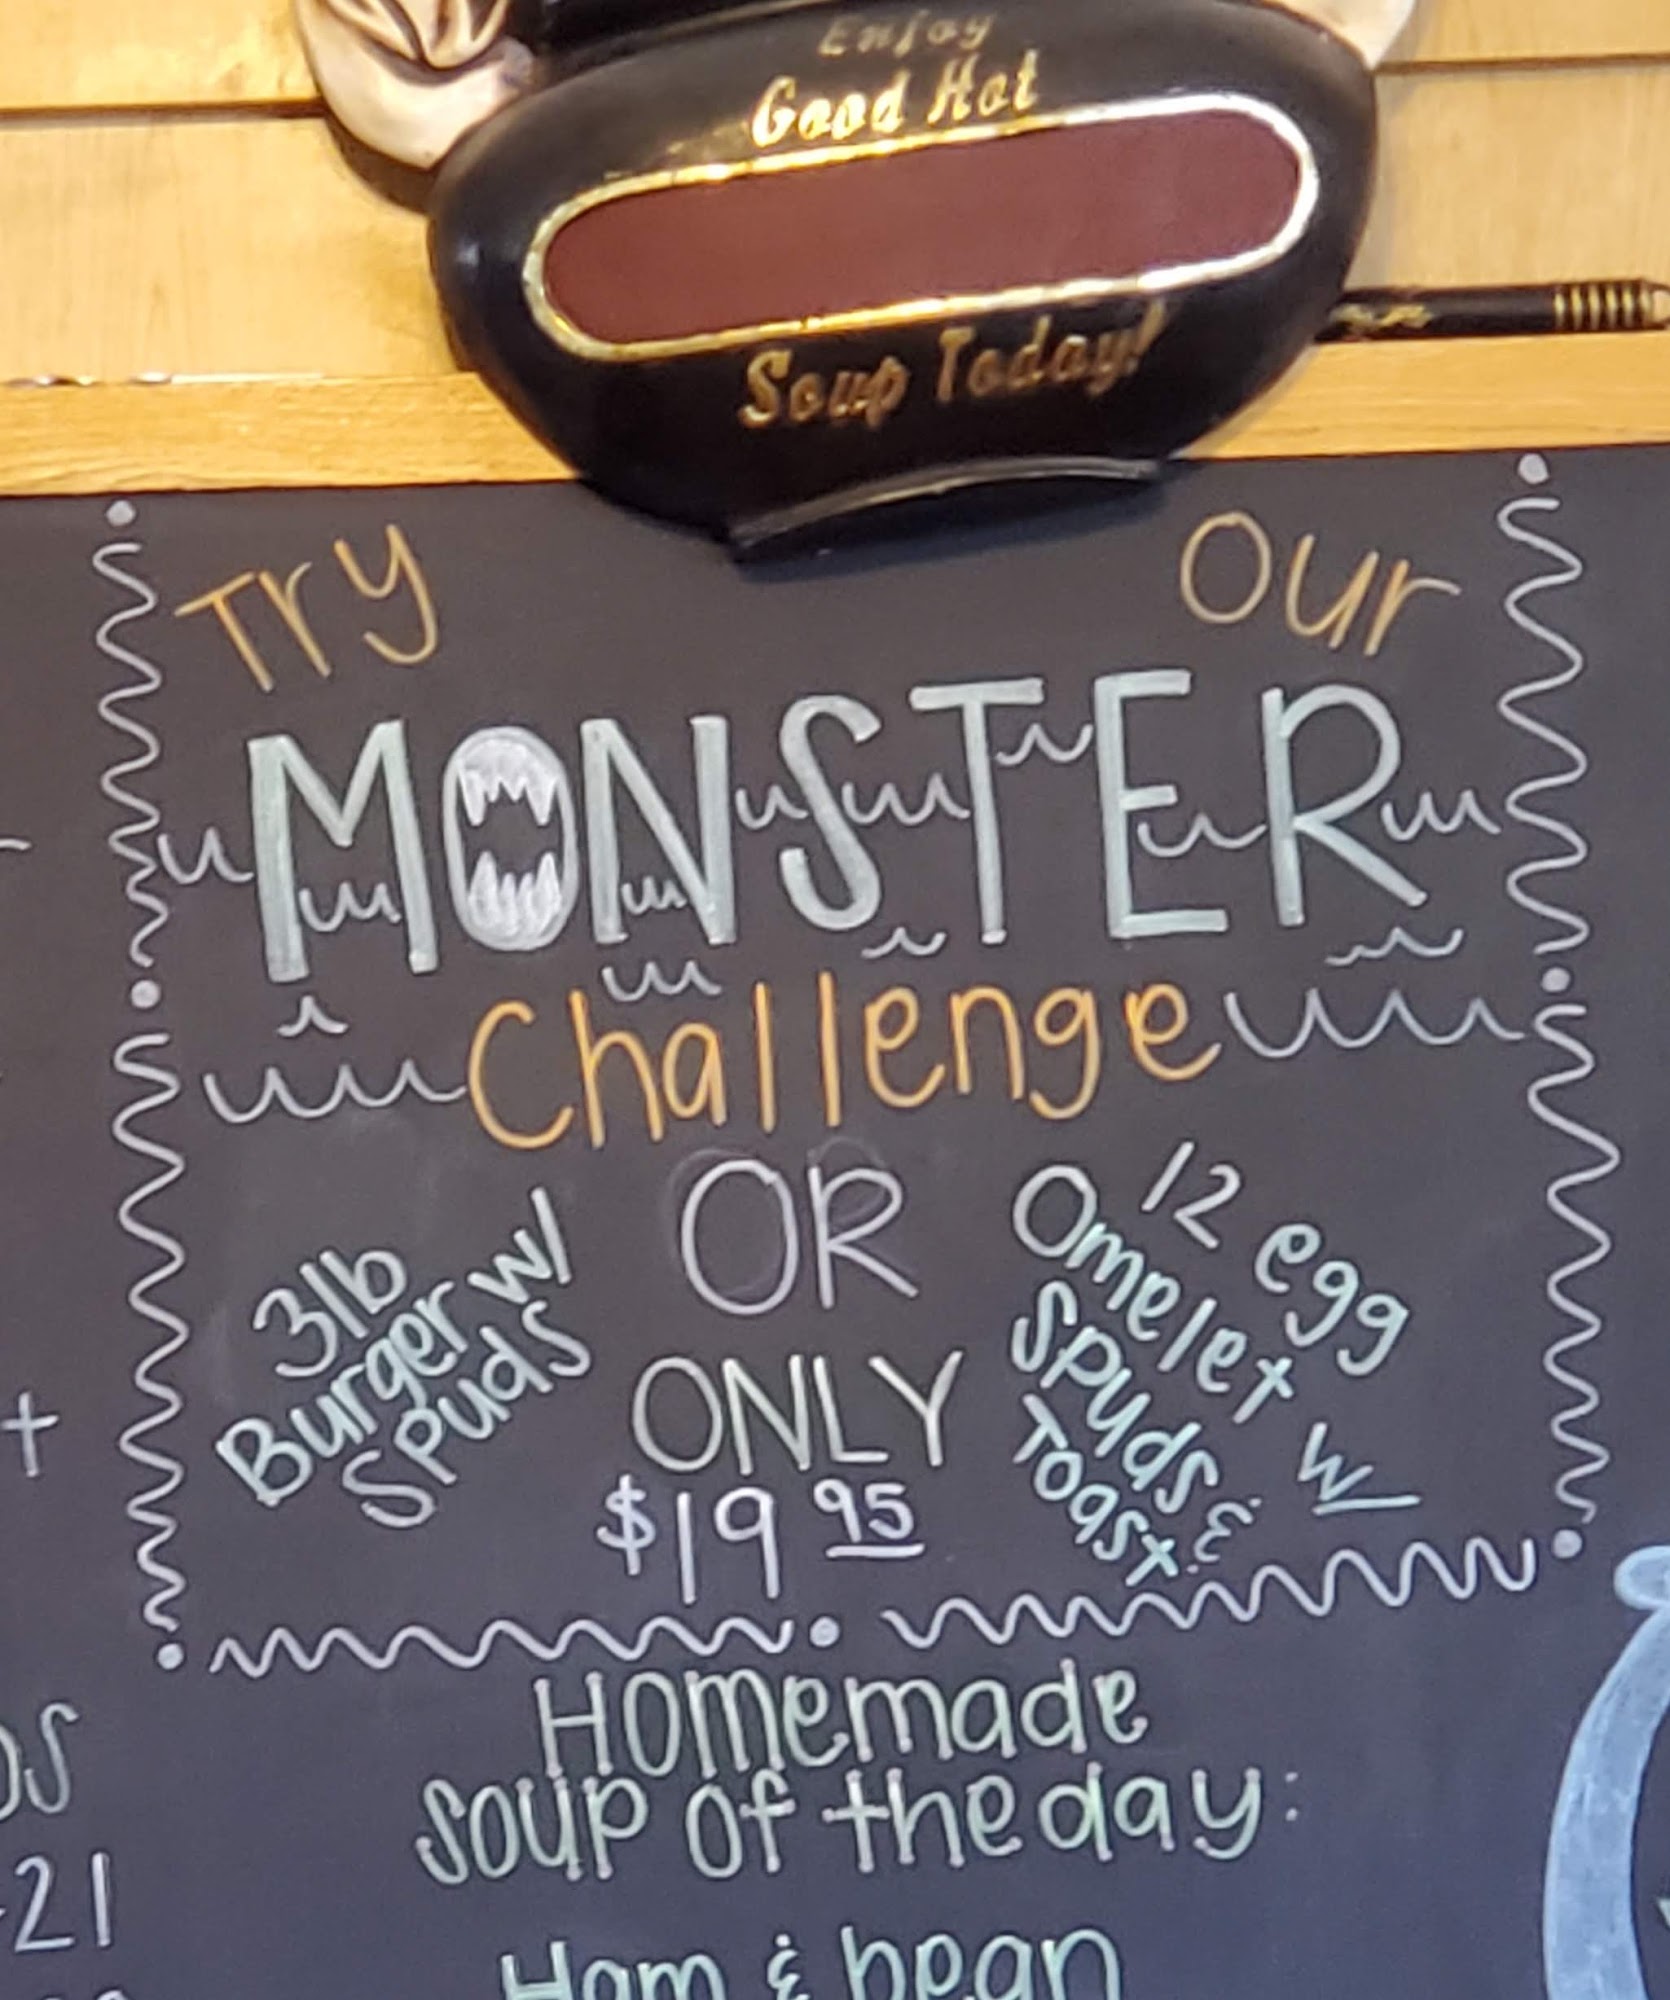 Enjoy
Good Hot
Soup Today!
Try Our
MONSTER
Challenge
3lb
Burger w/
Spuds
OR
ONLY
$19 95
12 egg
Omelet w/
Spuds &
Toast
Homemade
Soup of the day:
Ham & bean
21